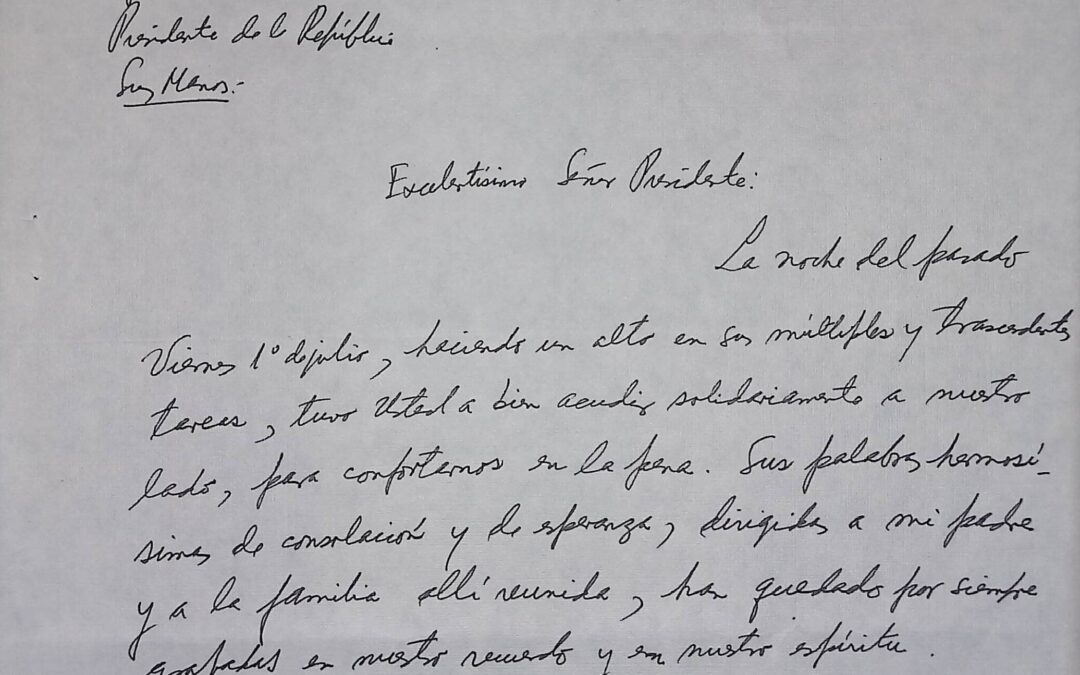 Presidente de la República
Sus Manos.-
Excelentísimo Señor Presidente:
La noche del pasado
Viernes 1º de julio, haciendo un alto en sus múltiples y trascendentes
tareas, tuvo Usted a bien acudir solidariamente a nuestro
lado, para confortarnos en la pena. Sus palabras hermosí-
simas de consolación y de esperanza, dirigidas a mi padre
y a la familia allí reunida, han quedado por siempre
grabadas en nuestro recuerdo y en nuestro espíritu.